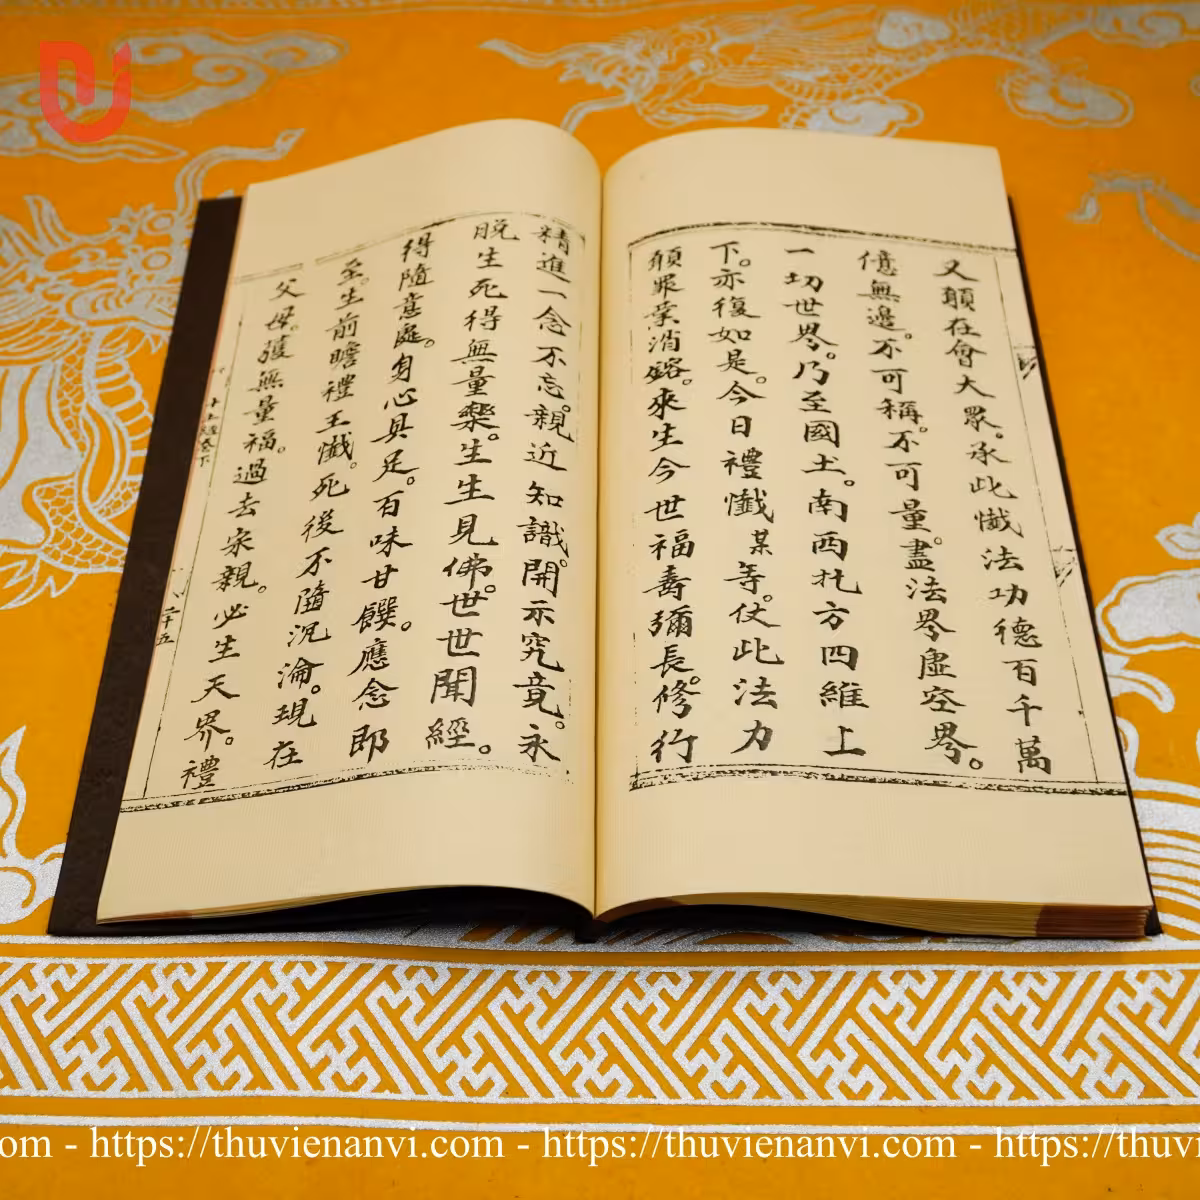 又願在會大眾。承此懺法功德百千萬
億無邊。不可稱。不可量。盡法界虛空界。
一切世界。乃至國土。南西北方四維上
下。亦復如是。今日禮懺某等。仗此法力
願罪業消鎔。來生今世福壽彌長。修行
精進一念不忘。親近知識。開示究竟。永
脫生死得無量樂。生生見佛。世世聞經。
得隨意處。身心具足。百味甘饌。應念即
至。生前瞻禮王懺。死後不隨沉淪。現在
父母。獲無量福。過去宗親。必生天界。禮
卷下
二十五
.com - https://thuvienanvi.com - https://thuvi